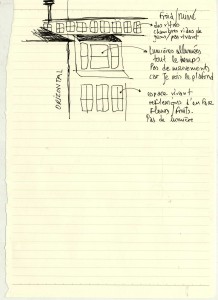 Froid/
des vitres
chambres vides de
gens/pas vivant
Lumières allumées
tout le temps
Pas de mouvements
car je vois le plafond
HORIZONTAL
espace vivant
réflexions d'un
Fleurs/fruits.
Pas de lumière